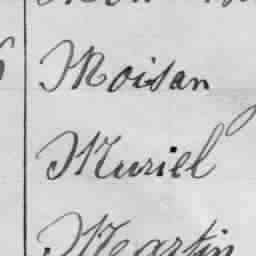 Moisan
Muriel
Martin